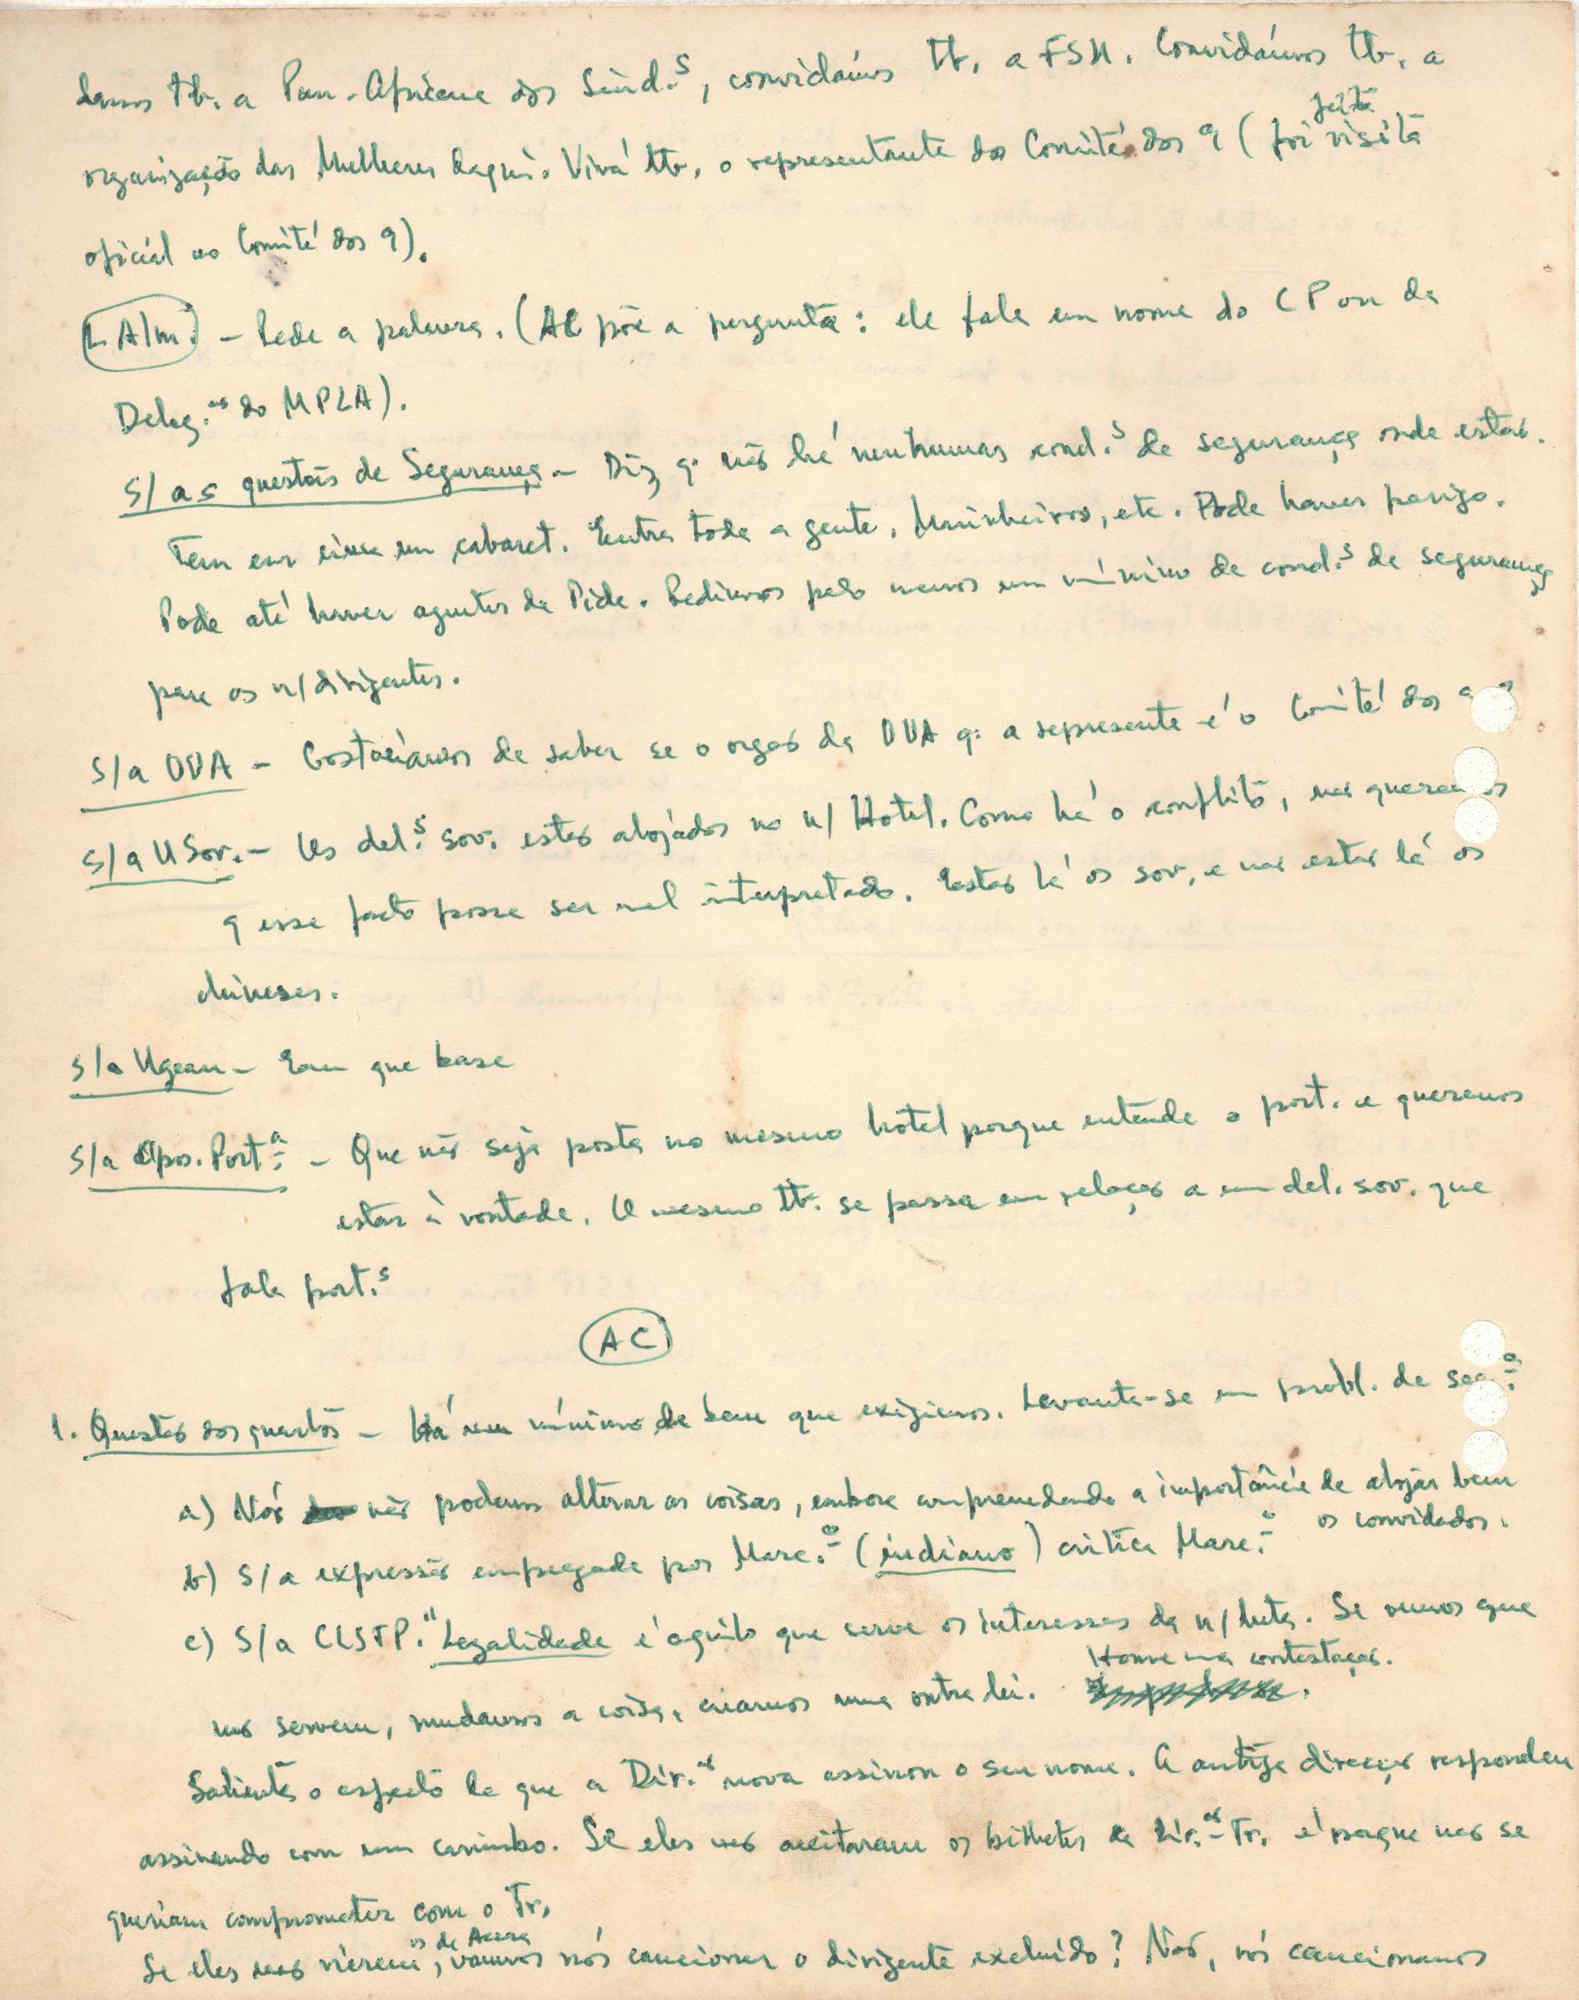 damos tb. a Pan-Africana dos Sind.s, convidámos tb. a FSM. Convidámos tb. a
organização das Mulheres daqui. Virá tb. o representante do Comité dos 9 (foi feita visita
oficial ao Comité dos 9).
L. Alm. - Pede a palavra. (AC põe a pergunta: ele fala em nome do CP ou da
Deleg.ão do MPLA).
S/ as questões de Segurança - Diz q. não há nenhumas cond.s de segurança onde estão.
Tem em cima um cabaret. Entra toda a gente, Marinheiros, etc. Pode haver perigo.
Pode até haver agentes da Pide. Pedimos pelo menos um mínimo de cond.s de segurança
para os n/ dirigentes.
S/a OUA - Gostaríamos de saber se o orgão da OUA q. a representa é o Comité dos 9
S/a USov. - Os del.s sov. estão alojados no n/ Hotel. Como há o conflito, não queremos
q esse facto possa ser mal interpretado. Estão lá os sov. e não estão lá os
chineses.
S/a Ugean - Em que base
S/a Opos. Port.a - Que não seja posta no mesmo hotel porque entende o port. e queremos
estar à vontade. O mesmo tb. se passa em relação a um del. sov. que
fala port.s
AC
1. Questão dos quartos - Há um mínimo de bem que exigimos. Levanta-se um probl. de seg.
a) Nós não podemos alterar as coisas, embora compreendendo a importância de alojar bem
os convidados.
b) S/a expressão empregada por Marc.o (indiano) critica Marc.o
c) S/a CLSTP. "Legalidade é aquilo que serve os interesses da n/ luta. Se vemos que
não servem, mudamos a coisa, criamos uma outra lei. Houve uma contestação.
Salienta o aspecto de que a Dir.ão nova assinou o seu nome. A antiga direcção respondeu
assinando com um carimbo. Se eles não aceitaram os bilhetes da Dir.ão Tr. é porque não se
queriam comprometer com o Tr.
Se eles não vierem, os de Accra vamos nós caucionar o dirigente excluído? Não, nós caucionamos